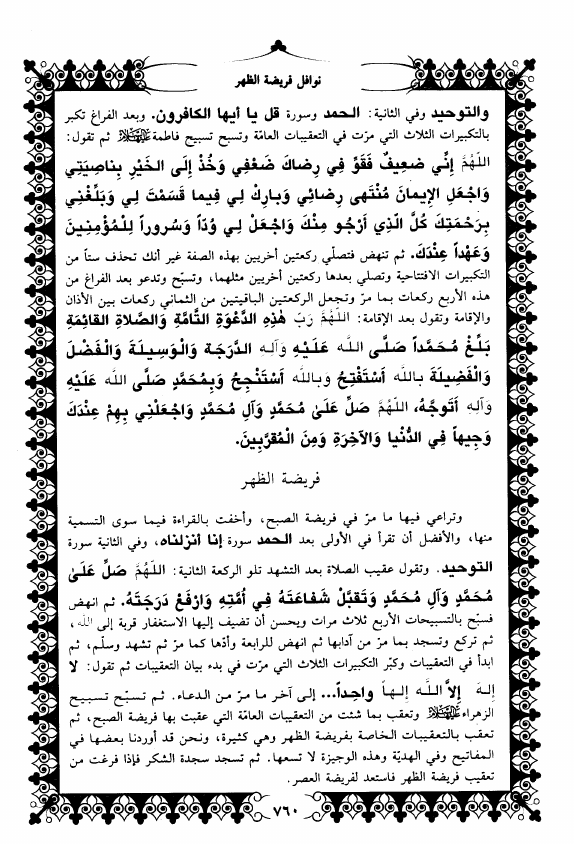 نوافل فريضة الظهر
والتوحيد وفي الثانية: الحمد وسورة قل يا أيها الكافرون. وبعد الفراغ تكبر
بالتكبيرات الثلاث التي مرّت في التعقيبات العامّة وتسبح تسبيح فاطمة عليها السلام ثم تقول:
اللهُمَّ إِنِّي ضَعِيفٌ فَقَوِّ فِي رِضاكَ ضَعْفِي وَخُذْ إِلَى الخَيْرِ بِناصِيَتِي
وَاجْعَلِ الإِيمانَ مُنْتَهى رِضائِي وَبارِكْ لِي فِيما قَسَمْتَ لِي وَبَلِّغْنِي
بِرَحْمَتِكَ كُلَّ الَّذِي أَرْجُو مِنْكَ وَاجْعَلْ لِي وُدّاً وَسُروراً لِلْمُؤْمِنِينَ
وَعَهْداً عِنْدَكَ. ثم تنهض فتصلّي ركعتين أخريين بهذه الصفة غير أنك تحذف ستاً من
التكبيرات الافتتاحية وتصلي بعدها ركعتين أخريين مثلهما، وتسبّح وتدعو بعد الفراغ من
هذه الأربع ركعات بما مرّ وتجعل الركعتين الباقيتين من الثماني ركعات بين الأذان
والإقامة وتقول بعد الإقامة: اللهُمَّ رَبَّ هٰذِهِ الدَّعْوَةِ التَّامَّةِ وَالصَّلاةِ القائِمَةِ
بَلِّغْ مُحَمَّداً صَلَّى الله عَلَيْهِ وَآلِهِ الدَّرَجَةَ وَالْوَسِيلَةَ وَالْفَضْلَ
وَالْفَضِيلَةَ بِالله أَسْتَفْتِحُ وَبِالله أَسْتَنْجِحُ وَبِمُحَمَّدٍ صَلَّى الله عَلَيْهِ
وَآلِهِ أَتَوجَّهُ، اللهُمَّ صَلِّ عَلىٰ مُحَمَّدٍ وَآلِ مُحَمَّدٍ وَاجْعَلْنِي بِهِمْ عِنْدَكَ
وَجِيهاً فِي الدُّنْيا وَالآخِرَةِ وَمِنَ الْمُقَرَّبِينَ.
فريضة الظهر
وتراعي فيها ما مرّ في فريضة الصبح، وأخفت بالقراءة فيما سوى التسمية
منها، والأفضل أن تقرأ في الأولى بعد الحمد سورة إنا أنزلناه، وفي الثانية سورة
التوحيد. وتقول عقيب الصلاة بعد التشهد تلو الركعة الثانية: اللهُمَّ صَلِّ عَلىٰ
مُحَمَّدٍ وَآلِ مُحَمَّدٍ وَتَقَبَّلْ شَفاعَتَهُ فِي أُمَّتِهِ وَارْفَعْ دَرَجَتَهُ. ثم انهض
فسبّح بالتسبيحات الأربع ثلاث مرات ويحسن أن تضيف إليها الاستغفار قربة إلى الله،
ثم تركع وتسجد بما مرّ من آدابها ثم انهض للرابعة وأدّها كما مرّ ثم تشهد وسلّم، ثم
ابدأ في التعقيبات وكبّر التكبيرات الثلاث التي مرّت في بدء بيان التعقيبات ثم تقول: لا
إِلهَ إِلاَّ الله إِلهاً واحِداً... إلى آخر ما مرّ من الدعاء. ثم تسبّح تسبيح
الزهراء عليها السلام وتعقب بما شئت من التعقيبات العامّة التي عقبت بها فريضة الصبح، ثم
تعقب بالتعقيبات الخاصة بفريضة الظهر وهي كثيرة، ونحن قد أوردنا بعضها في
المفاتيح وفي الهديّة وهذه الوجيزة لا تسعها. ثم تسجد سجدة الشكر فإذا فرغت من
تعقيب فريضة الظهر فاستعد لفريضة العصر.
٧٦٠